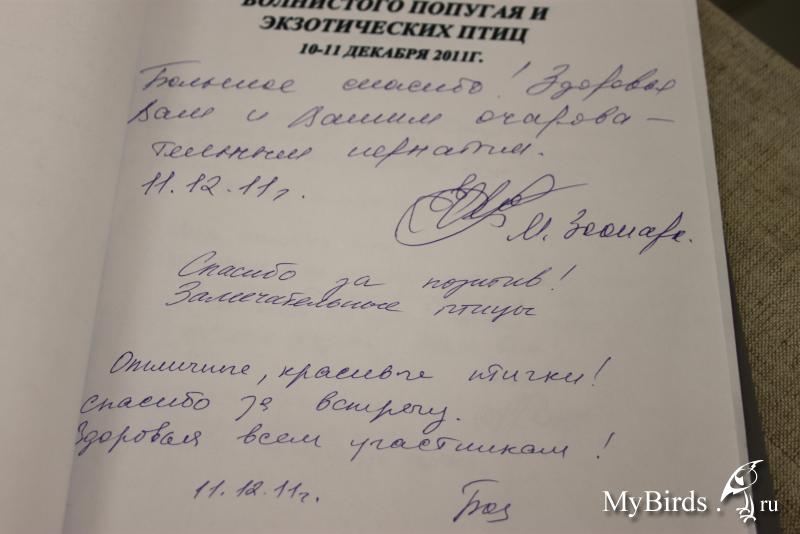 ВОЛНИСТОГО ПОПУГАЯ И
ЭКЗОТИЧЕСКИХ ПТИЦ
10-11 ДЕКАБРЯ 2011Г.
Большое спасибо! Здоровья
Вам и Вашим очарова-
тельным пернатым.
11.12.11г.
М. Зоопарк.
Спасибо за позитив!
Замечательные птицы
Отличные, красивые птички!
спасибо за встречу.
Здоровья всем участникам!
11.12.11г.
MyBirds.ru